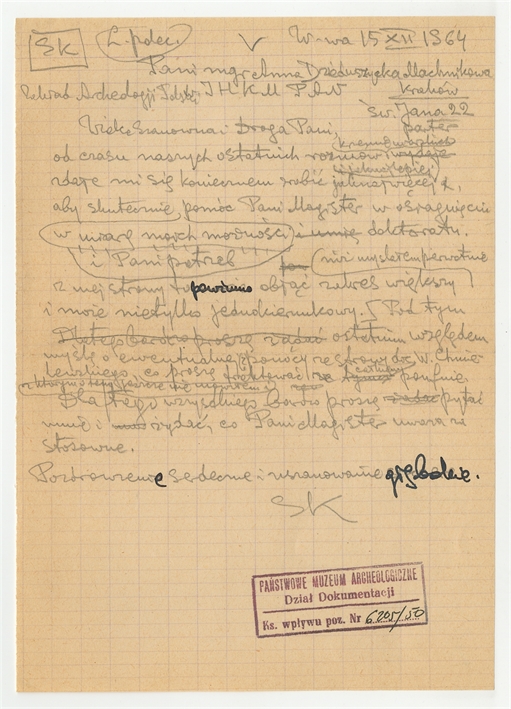 SK L. pdec. V W-wa 15 XII 1964
Pani mgr Anna Dzieduszycka Machnikowa
Zakład Archeologii Polski IHKM PAN Kraków
św. Jana 22
parter
Wielce Szanowna i Droga Pani,
od czasu naszych ostatnich rozmów i wydaje
zdaje mi się koniecznem zrobić jaknajwięcej,
aby skutecznie pomóc Pani Magister w osiągnięciu
w miarę moich możności i umię doktoratu.
i Pani potrzeb
niż myślałem pierwotnie
z mej strony to powinno objąć zakres większy
i może nietylko jednokierunkowy. Pod tym
Dlatego bardzo proszę żądać ostatnim względem
myślę o ewentualnej pomocy ze strony doc. W. Chmie-
lewskiego, co proszę traktować poufnie
z którym o tem jeszcze nie mówiłem
Dla tego wszystkiego bardzo proszę pytać
mnie i żądać, co Pani Magister uważa za
stosowne.
Pozdrowienie serdeczne i uszanowanie głębokie.
SK
PAŃSTWOWE MUZEUM ARCHEOLOGICZNE
Dział Dokumentacji
Ks. wpływu poz. Nr 6205/50